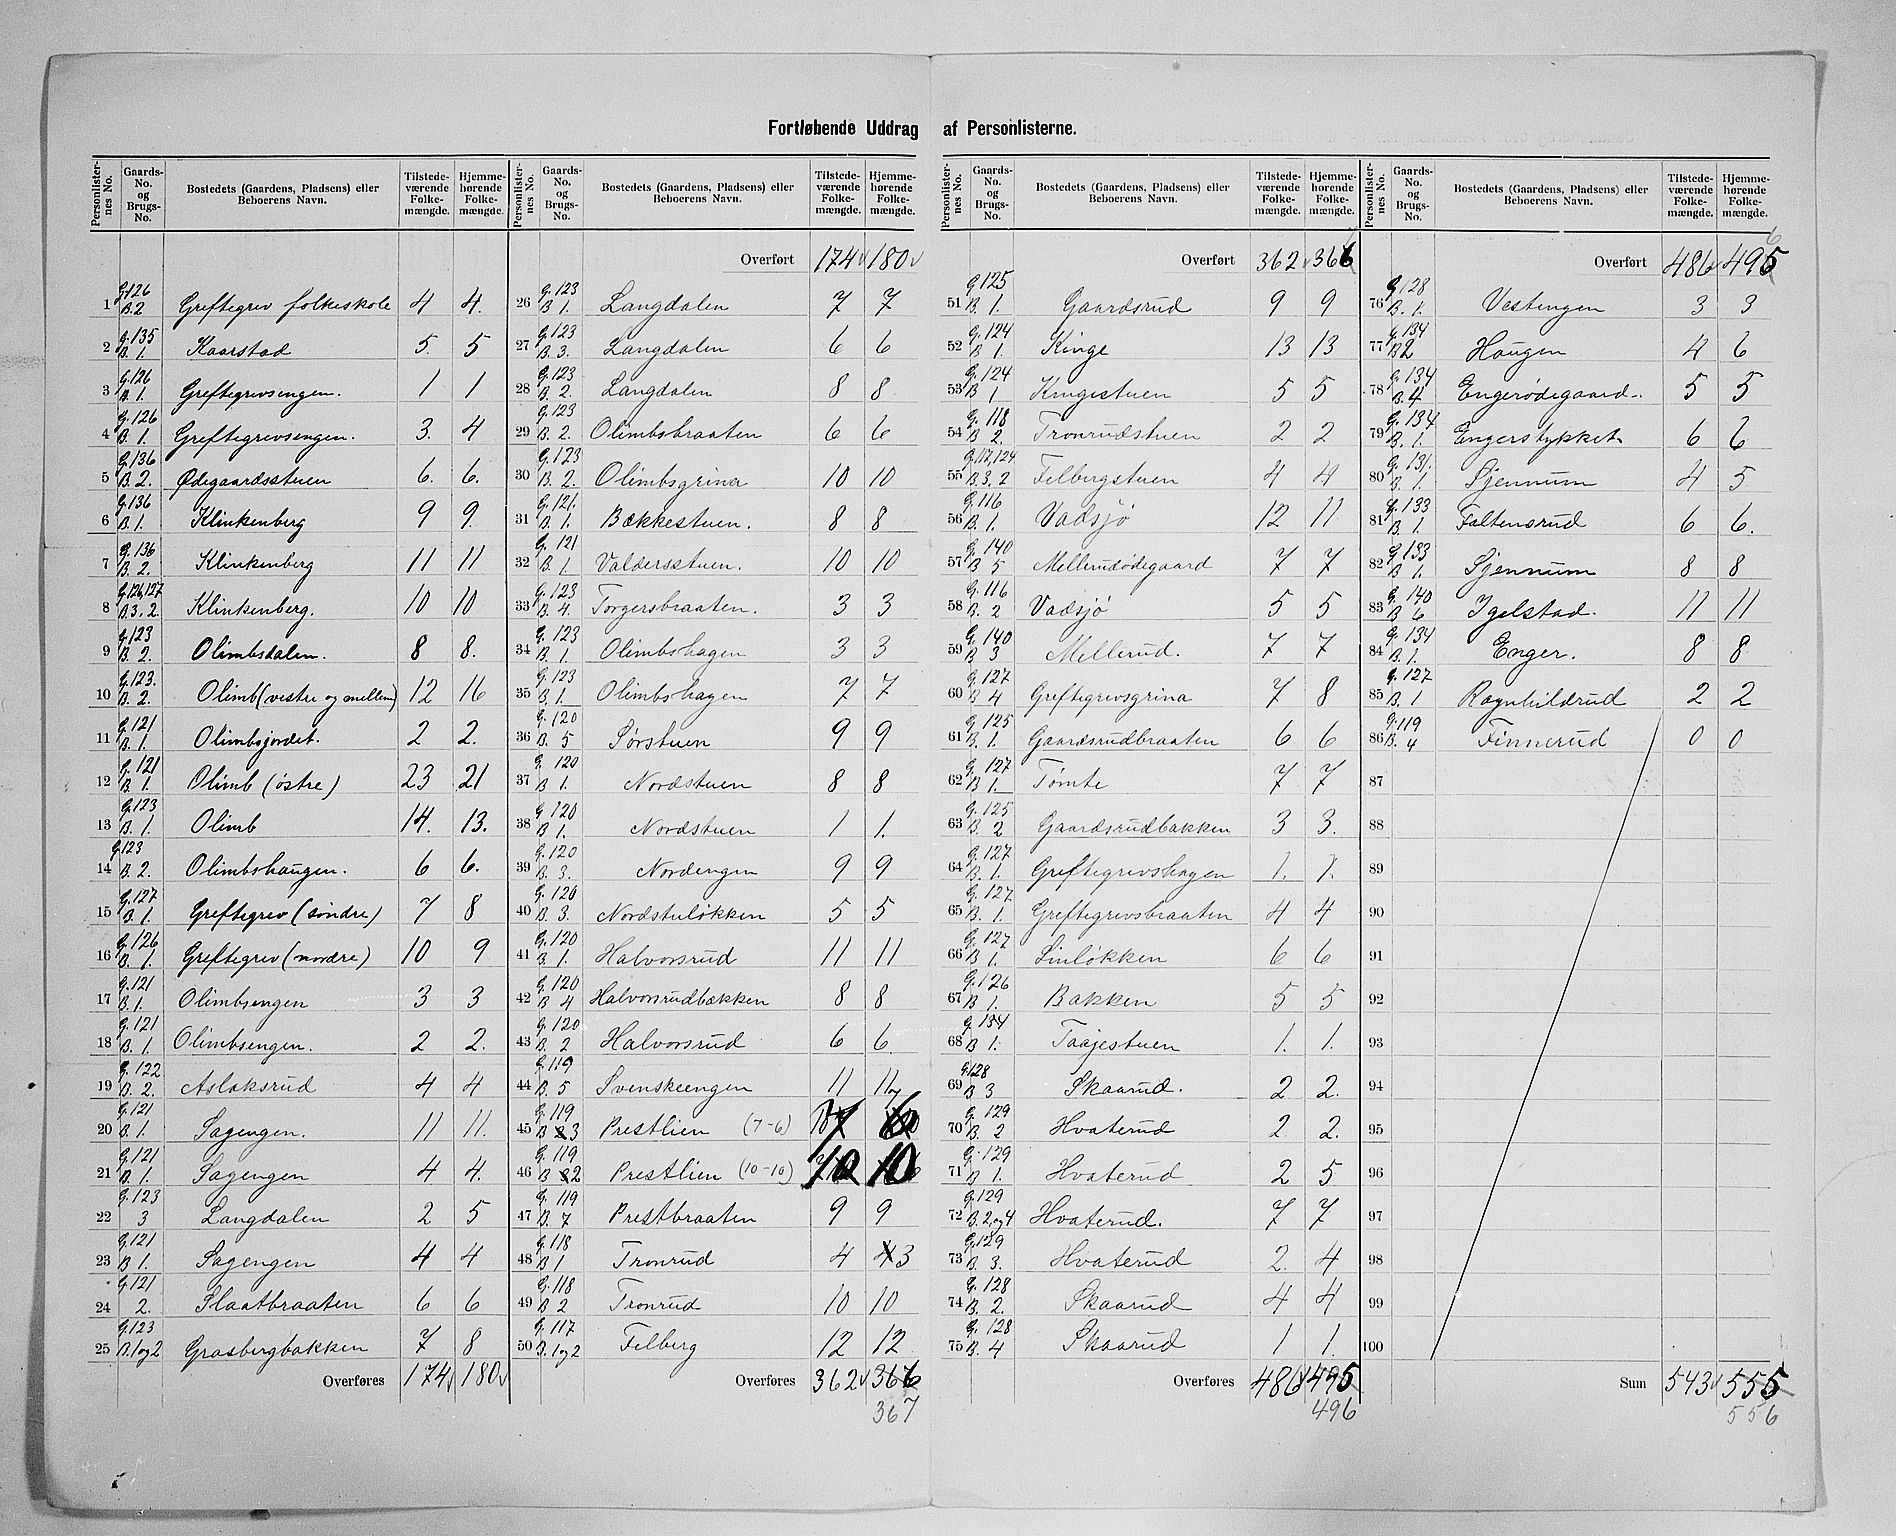 Fortløbende Uddrag af Personlisterne.
Personlister-nes No. | Gaards-No. og Brugs-No. | Bostedets (Gaardens, Pladsens) eller Beboerens Navn. | Tilstede-værende Folke-mængde. | Hjemme-hørende Folke-mængde.
1 G. 126 B. 2 Greftegrev folkeskole 4 4.
2 G. 135 B. 1. Kaarstad 5. 5
3 G. 126 B. 1. Greftegrevsengen. 1 1
4 G. 126 B. 1. Greftegrevsengen. 3. 4
5 G. 136 B. 2. Ødegaardsstuen 6. 6.
6 G. 136 B. 1. Klinkenberg 9 9.
7 G. 136 B. 2. Klinkenberg 11 11
8 G. 126, 127 B. 3, 2. Klinkenberg. 10 10
9 G. 123 B. 2. Olimbsdalen. 8 8.
10 G. 123. B. 2. Olimb (vestre og mellem) 12 16
11 G. 121 B. 1. Olimbsjordet. 2 2.
12 G. 121 B. 1. Olimb (østre) 23 21
13 G. 123 B. 1. Olimb 14. 13.
14 G. 123 B. 2. Olimbshaugen. 6 6.
15 G. 127 B. 1. Greftegrev (søndre) 7 8
16 G. 126 B. 1. Greftegrev (nordre) 10 9
17 G. 121 B. 1. Olimbsengen 3 3
18 G. 121 B. 1. Olimbsengen. 2 2.
19 G. 122 B. 2. Aslaksrud 4 4
20 G. 121 B. 1. Sagengen. 11 11.
21 G. 121 B. 1. Sagengen 4 4.
22 G. 123 3 Langdalen 2 5
23 G. 121 B 1. Sagengen 4 4
24 G. 121 2. Slaatbraaten 6 6
25 G. 123 B. 1 og 2 Grasbergbakken 7 8
Overføres 174 180
Personlister-nes No. | Gaards-No. og Brugs-No. | Bostedets (Gaardens, Pladsens) eller Beboerens Navn. | Tilstede-værende Folke-mængde. | Hjemme-hørende Folke-mængde.
Overført 174 180
26 G. 123 B. 1. Langdalen 7 7
27 G. 123 B. 3. Langdalen 6 6
28 G. 123 B. 2. Langdalen 8 8
29 G. 123 B. 2. Olimbsbraaten 6 6
30 G. 123 B. 2. Olimbsgrina 10 10
31 G. 121. B. 1. Bækkestuen. 8 8
32 G. 121 B. 1. Valdersstuen. 10 10
33 G. 123 B. 4. Torgersbraaten. 3 3
34 G. 123 B. 1. Olimbshagen 3 3
35 G. 123 B. 1. Olimbshagen 7 7
36 G. 120 B. 5 Sørstuen 9 9
37 G. 120 B 1. Nordstuen 8 8
38 G. 120 B 1. Nordstuen 1 1.
39 G. 120 B. 3. Nordengen 9 9
40 G. 120 B. 3. Nordstuløkken 5 5
41 G. 120 B. 1. Halvorsrud 11 11
42 G. 120 B 4 Halvorsrudbækken 8 8
43 G. 120 B. 2 Halvorsrud 6 6.
44 G. 119 B. 5 Svenskeengen 11 11
45 G. 119 B 3 Prestlien (7-6)
46 G. 119 B 2 Prestlien (10-10) 10 10
47 G. 119 B. 7 Prestbraaten 9 9
48 G. 118 B 1 Tronrud 4 4 3
49 G. 118 B 2 Tronrud 10 10
50 G. 117 B. 1 og 2 Felberg 12 12
Overføres 362 366
367
Personlister-nes No. | Gaards-No. og Brugs-No. | Bostedets (Gaardens, Pladsens) eller Beboerens Navn. | Tilstede-værende Folke-mængde. | Hjemme-hørende Folke-mængde.
Overført 362 366
51 G. 125 B. 1. Gaardsrud 9 9
52 G. 124 B 1. Kinge 13 13
53 G. 124 B 1 Kingestuen 5 5
54 G. 118 B 2. Tronrudstuen 2 2
55 G. 117, 124 B. 3, 2 Felbergstuen 4 4
56 G. 116 B. 1. Vadsjø 12 11
57 G. 140 B 5 Mellerudødegaard 7 7
58 G. 116 B. 2 Vadsjø 5 5
59 G. 140 B 3 Mellerud. 7 7
60 G. 127 B 4 Greftegrevsgrina 7 8
61 G. 125 B. 1. Gaardsrudbraaten 6 6
62 G. 127 B 1. Tømte 7 7
63 G. 125 B. 2 Gaardsrudbakken 3 3.
64 G. 127 B. 1. Greftegrevshagen 1. 1.
65 G. 127 B. 1. Greftegrevsbraaten 4 4
66 G. 127 B 1. Linløkken 6 6
67 G. 126 B 1. Bakken 5 5
68 G. 134 B 1. Taajestuen 1. 1.
69 G. 128 B 3 Skaarud. 2 2.
70 G. 129 B. 2 Hvaterud 2 2.
71 G. 129 B 1. Hvaterud 2 5
72 G. 129 B. 2, og 4 Hvaterud. 7 7
73 G. 129 B. 3. Hvaterud 2. 4
74 G. 128 B. 2. Skaarud 4 4
75 G. 128 B. 4 Skaarud 1 1.
Overføres 486 495
496
Personlister-nes No. | Gaards-No. og Brugs-No. | Bostedets (Gaardens, Pladsens) eller Beboerens Navn. | Tilstede-værende Folke-mængde. | Hjemme-hørende Folke-mængde.
6
Overført 486 495
76 G. 128 B. 1. Vestengen 3 3
77 G. 134 B 2 Haugen 4 6
78 G. 134 B. 4 Engerødegaard. 5 5
79 G. 134 B. 1. Engerstykket 6 6
80 G. 131. B. 1. Sjennum 4 5
81 G. 133 B. 1. Faltensrud 6 6.
82 G. 133 B 1. Sjennum 8 8
83 G. 140 B 6 Igelstad. 11 11
84 G. 134 B 1. Enger. 8 8
85 G. 127 B. 1 Ragnhildrud 2 2
86 G. 119 B. 4 Finnerud 0 0
87
88
89
90
91
92
93
94
95
96
97
98
99
100
Sum 543 555
556